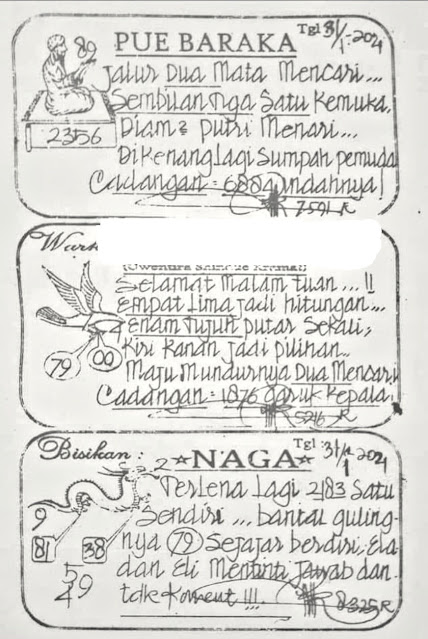 PUE BARAKA
Tgl 31/1-2021
89
Jalur Dua Mata Mencari...
Sembilan Tiga Satu Kemuka.
Diam2 Putri Menari...
Dikenang Lagi Sumpah pemuda
Cadangan = 6884 indahnya!
2356
7591 R
Selamat Malam tuan...!!
Empat Lima Jadi hitungan...
Enam Tujuh putar Sekali,
Kiri Kanan Jadi pilihan..
Maju Mundurnya Dua Mencari,
Cadangan = 1876 Garuk Kepala!
79 00
5246 R
Bisikan :
NAGA
Tgl : 31/1-2021
2
Terlena Lagi 2183 Satu
Sendiri... bantal guling-
nya 79 Sejajar berdiri. Ela
dan Eli Menanti Jawab dan
tdk Koment !!!
9
81 38
5
49
8325 R